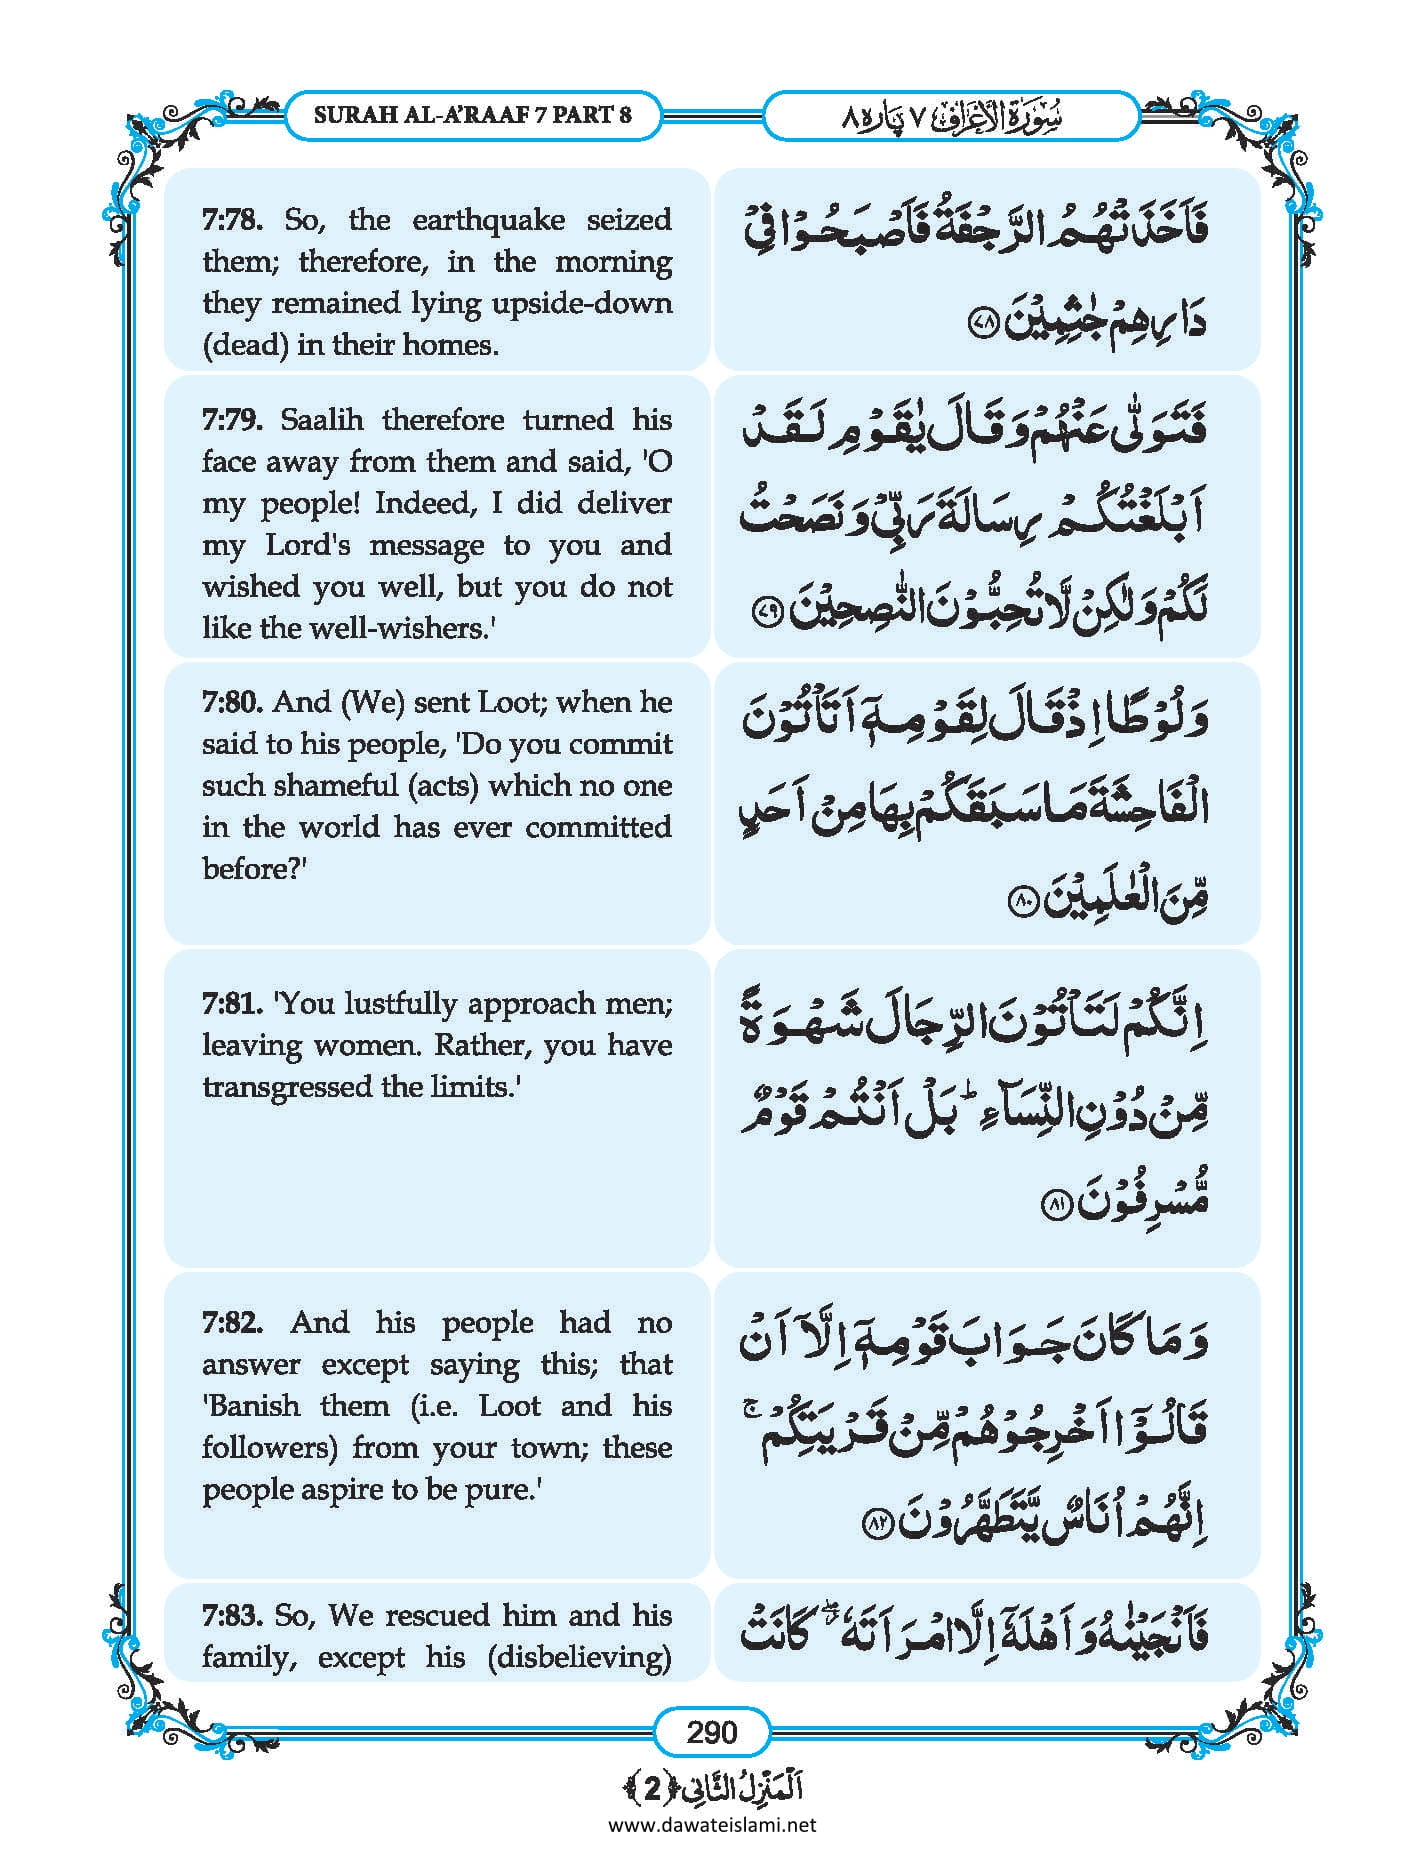 SURAH AL-A'RAAF 7 PART 8
سُوْرَةُ الْاَعْرَافِ ٧ پارہ ٨
7:78. So, the earthquake seized
them; therefore, in the morning
they remained lying upside-down
(dead) in their homes.
فَاَخَذَتْهُمُ الرَّجْفَةُ فَاَصْبَحُوْا فِيْ
دَارِهِمْ جٰثِمِيْنَ ﴿٧٨﴾
7:79. Saalih therefore turned his
face away from them and said, 'O
my people! Indeed, I did deliver
my Lord's message to you and
wished you well, but you do not
like the well-wishers.'
فَتَوَلّٰى عَنْهُمْ وَقَالَ يٰقَوْمِ لَقَدْ
اَبْلَغْتُكُمْ رِسَالَةَ رَبِّيْ وَنَصَحْتُ
لَكُمْ وَلٰكِنْ لَّا تُحِبُّوْنَ النّٰصِحِيْنَ ﴿٧٩﴾
7:80. And (We) sent Loot; when he
said to his people, 'Do you commit
such shameful (acts) which no one
in the world has ever committed
before?'
وَلُوْطًا اِذْ قَالَ لِقَوْمِهٖۤ اَتَاْتُوْنَ
الْفَاحِشَةَ مَا سَبَقَكُمْ بِهَا مِنْ اَحَدٍ
مِّنَ الْعٰلَمِيْنَ ﴿٨٠﴾
7:81. 'You lustfully approach men;
leaving women. Rather, you have
transgressed the limits.'
اِنَّكُمْ لَتَاْتُوْنَ الرِّجَالَ شَهْوَةً
مِّنْ دُوْنِ النِّسَآءِ ؕ بَلْ اَنْتُمْ قَوْمٌ
مُّسْرِفُوْنَ ﴿٨١﴾
7:82. And his people had no
answer except saying this; that
'Banish them (i.e. Loot and his
followers) from your town; these
people aspire to be pure.'
وَمَا كَانَ جَوَابَ قَوْمِهٖۤ اِلَّاۤ اَنْ
قَالُوْۤا اَخْرِجُوْهُمْ مِّنْ قَرْيَتِكُمْ ۚ
اِنَّهُمْ اُنَاسٌ يَّتَطَهَّرُوْنَ ﴿٨٢﴾
7:83. So, We rescued him and his
family, except his (disbelieving)
فَاَنْجَيْنٰهُ وَاَهْلَهٗۤ اِلَّا امْرَاَتَهٗ ۖ كَانَتْ
290
اَلْمَنْزِلُ الثَّانِي ﴿2﴾
www.dawateislami.net